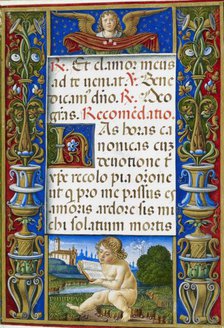 R. Et clamor meus
ad te veniat. V. Bene
dicamus dño. R. Deo
gr̃as. Recomẽdatio.
Has horas ca
nonicas cuz
devotione t
xp̃e recolo pia orone
ut q̃ pro me passus es
amoris ardore sis mi
chi solatium mortis